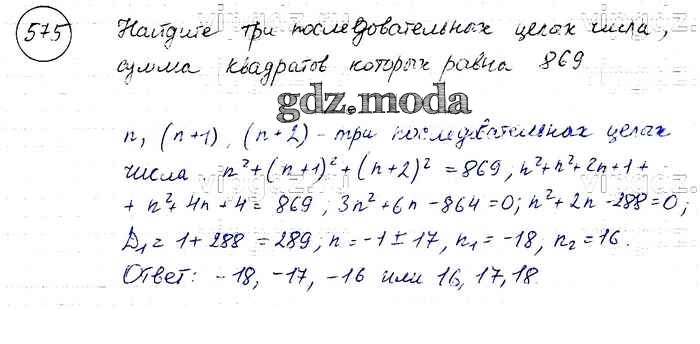 575 Найдите три последовательных целых числа,
сумма квадратов которых равна 869
gdz.moda
n, (n+1), (n+2) - три последовательных целых
числа. n²+(n+1)²+(n+2)² = 869; n²+n²+2n+1+
+ n²+4n+4 = 869; 3n²+6n-864=0; n²+2n-288=0;
D₁ = 1+288 = 289; n = -1±17, n₁ = -18, n₂ = 16.
Ответ: -18, -17, -16 или 16, 17, 18.